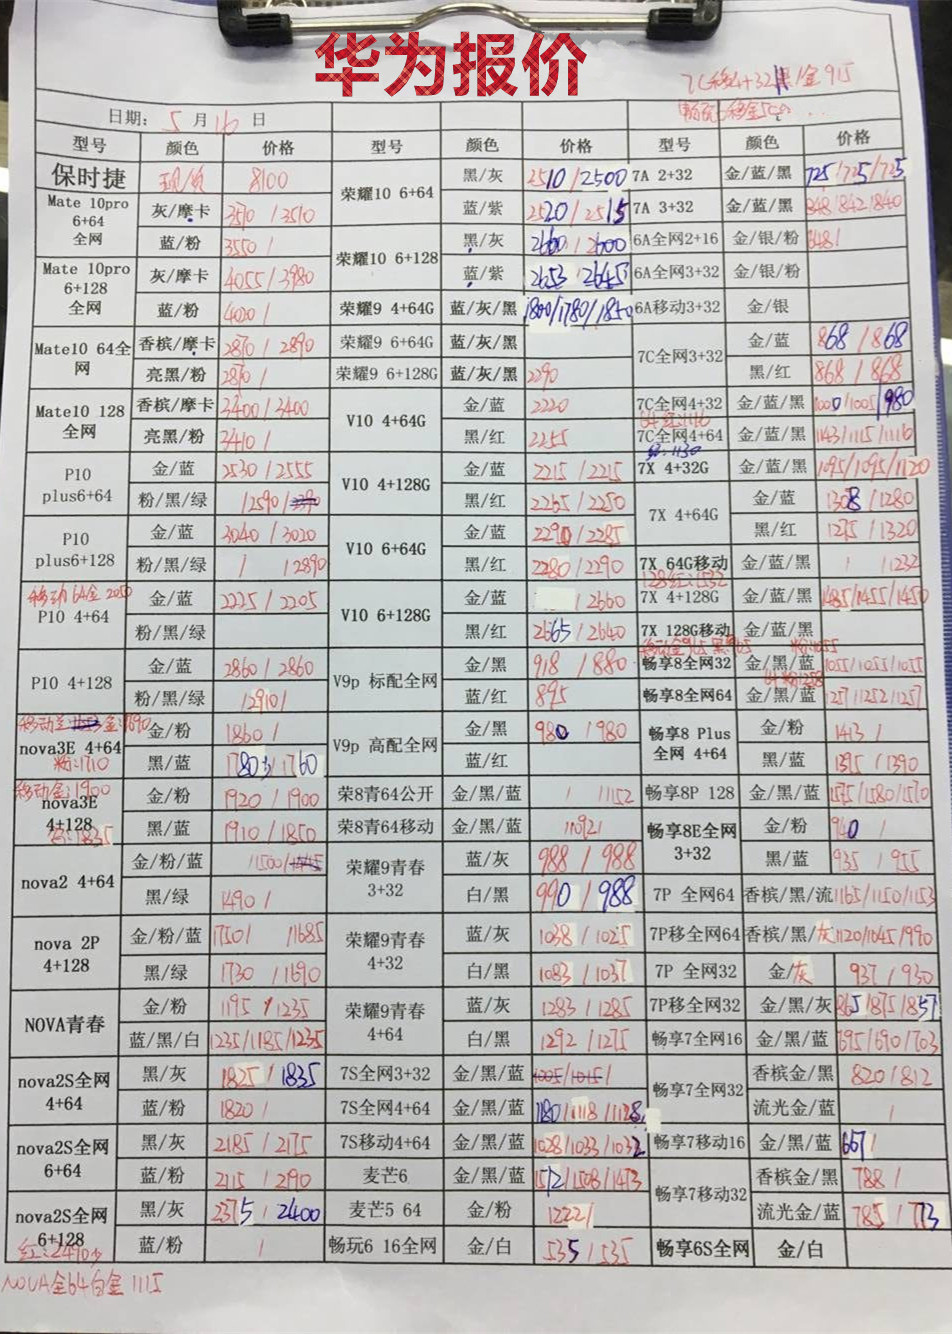 华为报价
7C移4+32黑/金 915
日期: 5 月 16 日
型号 颜色 价格 型号 颜色 价格 型号 颜色 价格
保时捷 8100 荣耀10 6+64 黑/灰 2510/2500 7A 2+32 金/蓝/黑 725/725/725
Mate 10pro 6+64 全网 灰/摩卡 3510 蓝/紫 2520/2515 7A 3+32 金/蓝/黑 848/842/840
蓝/粉 3550/ 荣耀10 6+128 黑/灰 2660/2600 6A全网2+16 金/银/粉 648/
Mate 10pro 6+128 全网 灰/摩卡 4055/3980 蓝/紫 2653 2645 6A全网3+32 金/银/粉
蓝/粉 4020/ 荣耀9 4+64G 蓝/灰/黑 1800/1780/1840 6A移动3+32 金/银
Mate10 64全网 香槟/摩卡 2870/2890 荣耀9 6+64G 蓝/灰/黑 7C全网3+32 金/蓝 868/868
亮黑/粉 2870/ 荣耀9 6+128G 蓝/灰/黑 2290 黑/红 868/868
Mate10 128全网 香槟/摩卡 3400/3400 V10 4+64G 金/蓝 2220 7C全网4+32 金/蓝/黑 1000/1005/980
亮黑/粉 3410/ 黑/红 2255 7C全网4+64 金/蓝/黑 1143/1115/1116
P10 plus6+64 金/蓝 2530/2555 V10 4+128G 金/蓝 2215/2215 7X 4+32G 金/蓝/黑 1095/1095/1120
粉/黑/绿 /2590/ 黑/红 2265/2250 7X 4+64G 金/蓝 1308/1280
P10 plus6+128 金/蓝 3040/3020 V10 6+64G 金/蓝 2290/2285 黑/红 1275/1320
粉/黑/绿 / /2890 黑/红 2280/2290 7X 64G移动 金/蓝/黑 / /1232
移动64金 2050
128红:1532
P10 4+64 金/蓝 2225/2205 V10 6+128G 金/蓝 /2660 7X 4+128G 金/蓝/黑 1485/1455/1450
粉/黑/绿 黑/红 2665/2640 7X 128G移动 金/蓝/黑
P10 4+128 金/蓝 2860/2860 V9p 标配全网 金/黑 918/880 畅享8全网32 金/黑/蓝 1055/1055/1055
粉/黑/绿 /2910/ 蓝/红 895 畅享8全网64 金/黑/蓝 1257/1252/1257
nova3E 4+64 粉:1710 金/粉 1860/ V9p 高配全网 金/黑 980/980 畅享8 Plus 全网 4+64 金/粉 1413/
黑/蓝 1780/1760 蓝/红 黑/蓝 1395/1390
移动金:1900
nova3E 4+128 金/粉 1920/1900 荣8青64公开 金/黑/蓝 / /1152 畅享8P 128 金/黑/蓝 1575/1580/1570
黑/蓝 1910/1850 荣8青64移动 金/黑/蓝 /1092/ 畅享8E全网 3+32 金/粉 940 /
nova2 4+64 金/粉/蓝 /1500/ 荣耀9青春 3+32 蓝/灰 988/988 黑/蓝 935/955
黑/绿 1490/ 白/黑 990/988 7P 全网64 香槟/黑/流 1165/1150/1153
nova 2P 4+128 金/粉/蓝 1750/ /1685 荣耀9青春 4+32 蓝/灰 1038/1025 7P移全网64 香槟/黑/灰 1120/1045/990
黑/绿 1730/1690 白/黑 1083/1037 7P 全网32 金/灰 937/930
NOVA青春 金/粉 1195/1235 荣耀9青春 4+64 蓝/灰 1283/1285 7P移全网32 金/黑/灰 865/875/857
蓝/黑/白 1235/1185/1235 白/黑 1292/1275 畅享7全网16 金/黑/蓝 695/690/703
nova2S全网 4+64 黑/灰 1825/1835 7S全网3+32 金/黑/蓝 1005/1015/ 畅享7全网32 香槟金/黑 820/812
蓝/粉 1820/ 7S全网4+64 金/黑/蓝 1180/1118/1128 流光金/蓝 /
nova2S全网 6+64 黑/灰 2185/2175 7S移动4+64 金/黑/蓝 1028/1033/1032 畅享7移动16 金/黑/蓝 667/
蓝/粉 2115/2190 麦芒6 金/黑/蓝 1512/1508/1473 畅享7移动32 香槟金/黑 788/
nova2S全网 6+128 黑/灰 2375/2400 麦芒5 64 金/粉 1222/ 流光金/蓝 785/773
蓝/粉 / 畅玩6 16全网 金/白 535/535 畅享6S全网 金/白
NOVA全64白金 1115